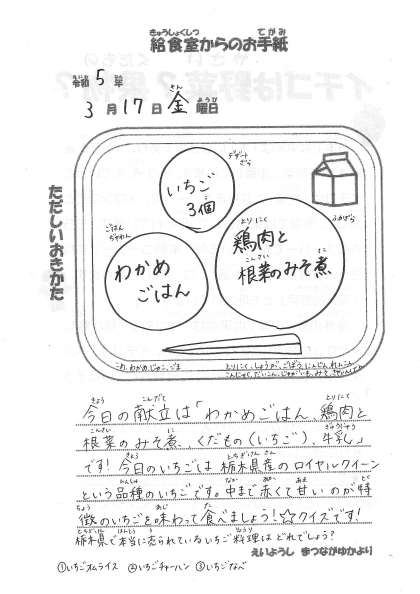 給食室からのお手紙
令和5年
3月17日金曜日
ただしいおきかた
いちご
3個
デザートざら
わかめ
ごはん
ごはんぢゃわん
鶏肉と
根菜のみそ煮
こめ、わかめ、じゃこ、ごま
とりにく、しょうが、ごぼう、にんじん、れんこん、
こんにゃく、だいこん、じゃがいも、みそ、
今日の献立は「わかめごはん、鶏肉と
根菜のみそ煮、くだもの(いちご)、牛乳」
です!今日のいちごは栃木県産のロイヤルクイーン
という品種のいちごです。中まで赤くて甘いのが特
徴のいちごを味わって食べましょう!☆クイズです!
栃木県で本当に売られているいちご料理はどれでしょう?
えいようし まつながゆかより
①いちごオムライス ②いちごチャーハン ③いちごなべ